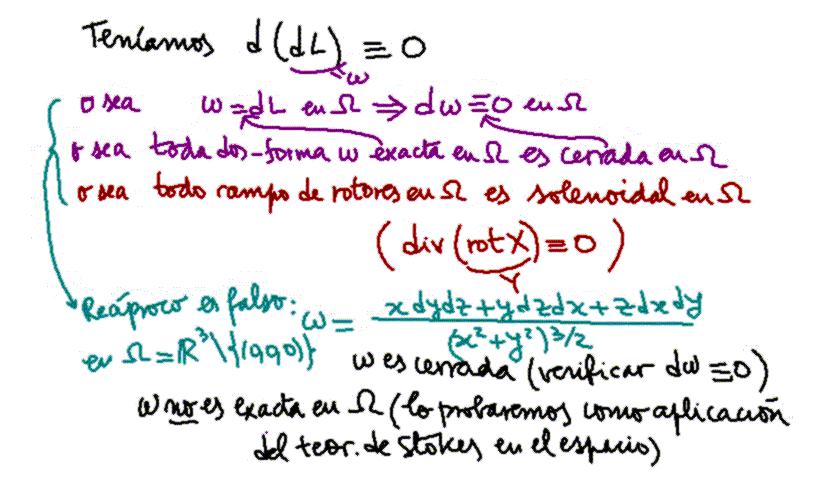 Teníamos d(dL) ≡ 0
= ω
o sea ω = dL en Ω ⇒ dω ≡ 0 en Ω
o sea toda dos-forma ω exacta en Ω es cerrada en Ω
o sea todo campo de rotores en Ω es solenoidal en Ω
(div(rot X) ≡ 0)
Y
Recíproco es falso: ω = x dydz + y dzdx + z dxdy / (x² + y²)^3/2
en Ω = ℝ³\{(0,0,0)}
ω es cerrada (verificar dω ≡ 0)
ω no es exacta en Ω (lo probaremos como aplicación
del teor. de Stokes en el espacio)